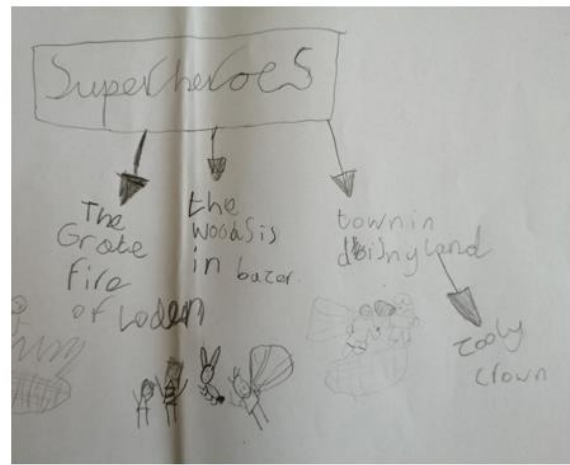 Superheroes
The
Grate
Fire
of Loden
the
woods is
in bazer.
town in
disnyland
zooly
clown